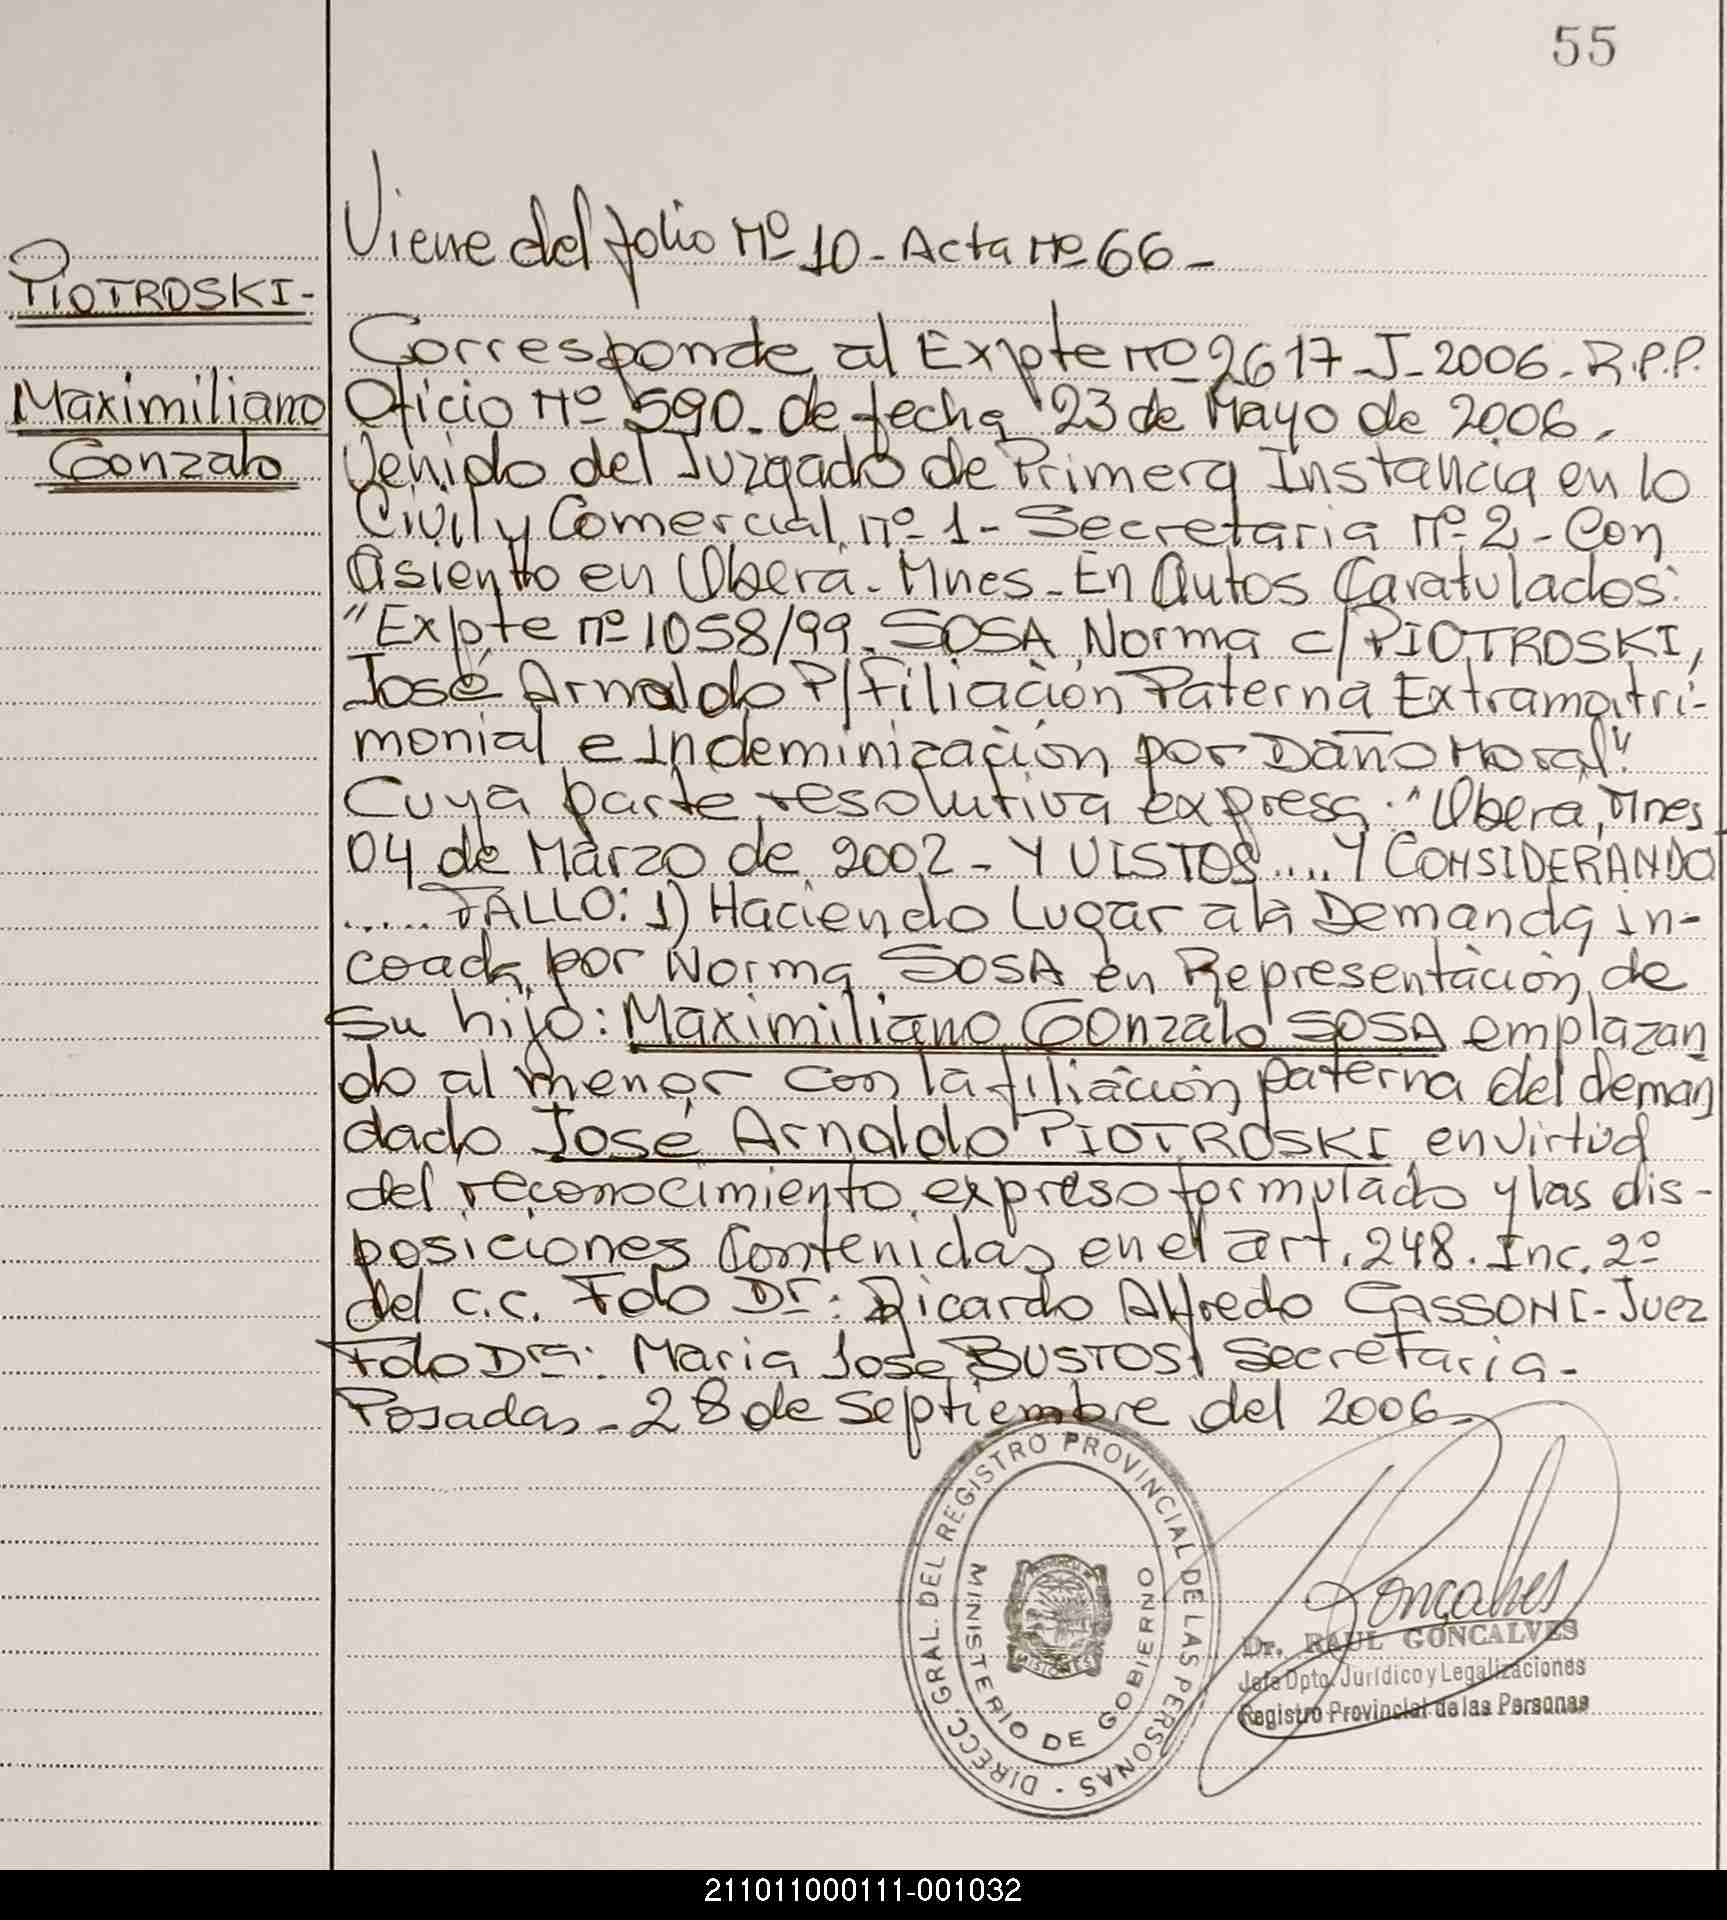 55
Viene del folio Nº 10 - Acta Nº 66 -
PIOTROSKI -
Maximiliano
Gonzalo
Corresponde al Expte nº 2617 - J - 2006 - R.P.P.
Oficio Nº 590 - de fecha 23 de Mayo de 2006 -
Venido del Juzgado de Primera Instancia en lo
Civil y Comercial nº 1 - Secretaria Nº 2 - Con
asiento en Obera - Mnes - En Autos Caratulados:
"Expte nº 1058/99 - SOSA Norma c/ PIOTROSKI,
José Arnaldo P/ Filiación Paterna Extramatri-
monial e Indeminización por Daño Moral".
Cuya parte resolutiva expresa: "Obera, Mnes
04 de Marzo de 2002 - Y VISTOS .... Y CONSIDERANDO
..... FALLO: 1) Haciendo Lugar a la Demanda in-
coada por Norma SOSA en Representación de
Su hijo: Maximiliano Gonzalo SOSA emplazan
do al menor con la filiación paterna del deman
dado José Arnaldo PIOTROSKI en virtud
del reconocimiento expreso formulado y las dis-
posiciones Contenidas en el art. 248. Inc. 2º
del c.c. Fdo Dr: Ricardo Alfredo CASSONI - Juez
Fdo Dra: Maria Jose BUSTOS Secretaria -
Posadas - 28 de Septiembre del 2006 -
DIRECC. GRAL. DEL REGISTRO PROVINCIAL DE LAS PERSONAS -
MINISTERIO DE GOBIERNO
MISIONES
Goncalves
Dr. RAUL GONCALVES
Jefe Dpto. Jurídico y Legalizaciones
Registro Provincial de las Personas
211011000111-001032